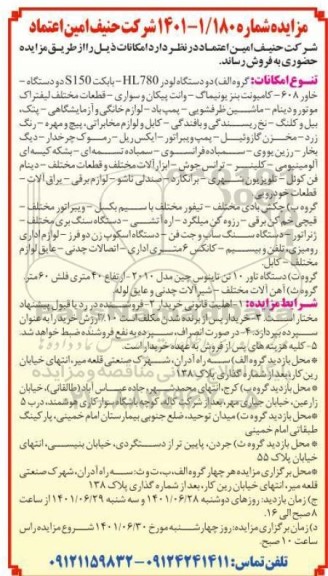 مزایده شماره ۱/۱۸۰-۱۴۰۱ شرکت حنیف امین اعتماد
شرکت حنیف امین اعتماد در نظر دارد امکانات ذیل را از طریق مزایده
حضوری به فروش رساند.
تنوع امکانات: گروه الف) دو دستگاه لودر HL780 - بابکت S150 دو دستگاه -
خاور ۶۰۸ - کامیونت بنز یونیماگ - وانت پیکان و سواری - قطعات مختلف لیفتراک
موتور و دینام - ماشین ظرفشویی - پمپ باد - لوازم خانگی و آزمایشگاهی - پتک،
بیل و کلنگ - نخ ریسندگی و بافندگی - کابل و لوازم مخابراتی، پیچ و مهره - رنگ
زرد - مخزن گازوئیل - پمپ ویبراتور - ایکس ریل - رمسک چرخدار - دیگ
بخار - رزین یووی - سمپاده
آلومینیومی - کلینتر - ترانس جوش - ابزار آلات مختلف و قطعات مختلف - دینام
فن کوئل - تلویزیون شهری - پرانکارد - صندلی تاشو - لوازم برقی - یراق آلات -
قطعات خودرویی
گروه ب) جکش بادی مختلف - تیفور مختلف با سیم بکسل - ویبراتور مختلف -
قیچی آرماتور برقی - رزوه کن میلگرد - اره آتشی - دستگاه سنگ بری مختلف -
ژنراتور - دستگاه سنگ ساب و جت فن - دستگاه اسکوپ زن دو فرز - لوازم اداری
رومیزی، تلفن و بیسیم - کانکس ۶ متری اداری - اتصالات چدنی - عایق لوازم
مختلف - کابل
گروه ت) دستگاه تاور ۱۰ تن تاپنوس چین مدل ۲۰۱۰ - ارتفاع ۴۰ متری فلش ۶۰ متر
گروه ث) آهن آلات مختلف - شیرآلات چدنی و عایق لوله
شرایط مزایده: ۱- اهلیت قانونی خریدار ۲- فروشنده در رد یا قبول پیشنهاد
مختار است ۳- خریدار به برنده شدن مکلف است ۱۰٪ ارزش خریدار به عنوان
سپرده بپردازد. ۴- در صورت انصراف، سپرده به نفع فروشنده ضبط خواهد شد.
۵- کلیه هزینه های پس از فروش به عهده خریدار است.
*محل بازدید گروه الف) سه راه آدران، شهرک صنعتی قلعه میر، انتهای خیابان
رین کار، بعد از شماره گذاری پلاک ۱۳۸
*محل بازدید گروه ب) کرج، انتهای محمدشهر، جاده عباس آباد (طالقانی)، خیابان
زارعین، خیابان جهان مهر، بعد از شرکت گاه کوچه باشگاه سوارکاری هوتمند، درب ۵
*محل بازدید گروه ت) میدان توحید، ضلع جنوبی بیمارستان امام خمینی، پارکینگ
طبقاتی امام خمینی
*محل بازدید گروه ث) جردن، پایین تر از دستگردی، خیابان بنیسی، انتهای
خیابان پلاک ۵۵
*محل برگزاری مزایده هر چهار گروه الف، ب، ت و ث: سه راه آدران، شهرک صنعتی
قلعه میر، انتهای خیابان رین کار، بعد از شماره گذاری پلاک ۱۳۸
ج) زمان بازدید: روزهای دوشنبه ۱۴۰۱/۰۶/۲۸ و سه شنبه ۱۴۰۱/۰۶/۲۹ از ساعت
۸ صبح الی ۱۶.
د) زمان برگزاری مزایده: روز چهارشنبه مورخ ۱۴۰۱/۰۶/۳۰ شروع مزایده راس
ساعت ۱۰ صبح.
تلفن تماس: ۰۹۱۲۴۲۴۱۴۱۱ - ۰۹۱۲۱۱۵۹۸۳۲